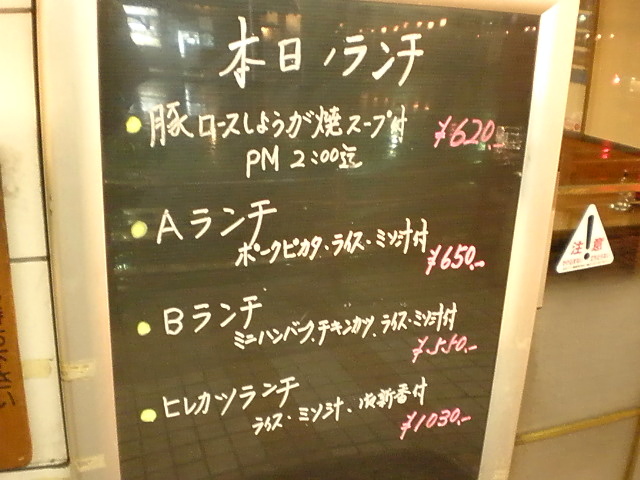 本日ノランチ
豚ロースしょうが焼スープ付 ¥620.-
PM 2:00迄
Aランチ
ポークピカタ・ライス・ミソ汁付
¥650.-
Bランチ
ミニハンバーグ、チキンカツ、ライス・ミソ汁付
¥550.-
ヒレカツランチ
ライス・ミソ汁、新香付
¥1030.-
注意